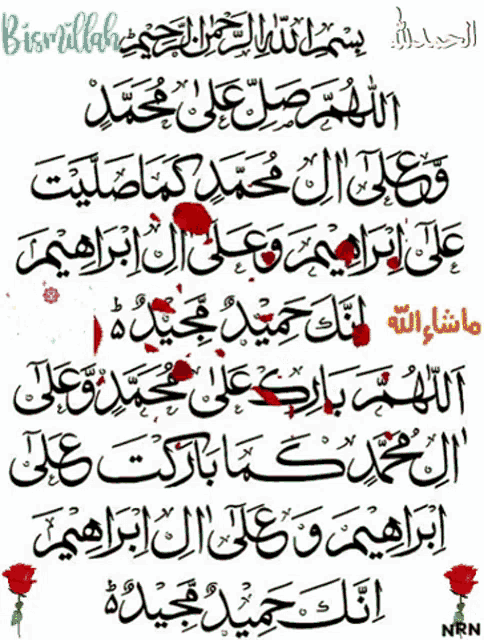 Bismillah بِسْمِ اللّٰهِ الرَّحْمٰنِ الرَّحِيْمِ الحمدلله
اَللّٰهُمَّ صَلِّ عَلٰى مُحَمَّدٍ
وَّعَلٰٓى اٰلِ مُحَمَّدٍ كَمَا صَلَّيْتَ
عَلٰٓى اِبْرَاهِيْمَ وَعَلٰٓى اٰلِ اِبْرَاهِيْمَ
اِنَّكَ حَمِيْدٌ مَّجِيْدٌ ؕ
ماشاءالله
اَللّٰهُمَّ بَارِكْ عَلٰى مُحَمَّدٍ وَّعَلٰٓى
اٰلِ مُحَمَّدٍ كَمَا بَارَكْتَ عَلٰٓى
اِبْرَاهِيْمَ وَعَلٰٓى اٰلِ اِبْرَاهِيْمَ
اِنَّكَ حَمِيْدٌ مَّجِيْدٌ ؕ
NRN